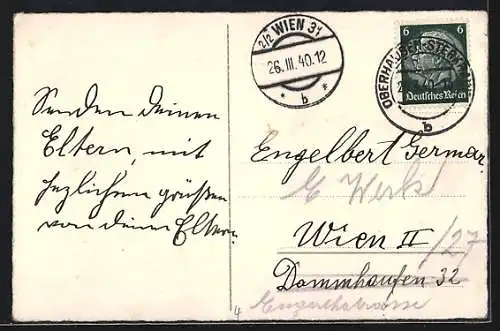 2/2 WIEN 31
26. III. 40.12
* b *
6 6
Deutsches Reich
OBERHAUSEN-STERKRADE
b
Senden deinen
Eltern, mit
herzlichen grüßen
von deinen Eltern.
Engelbert Germar
Werk
Wien II /27
Dammhaufen 32
4
Engerthstrasse